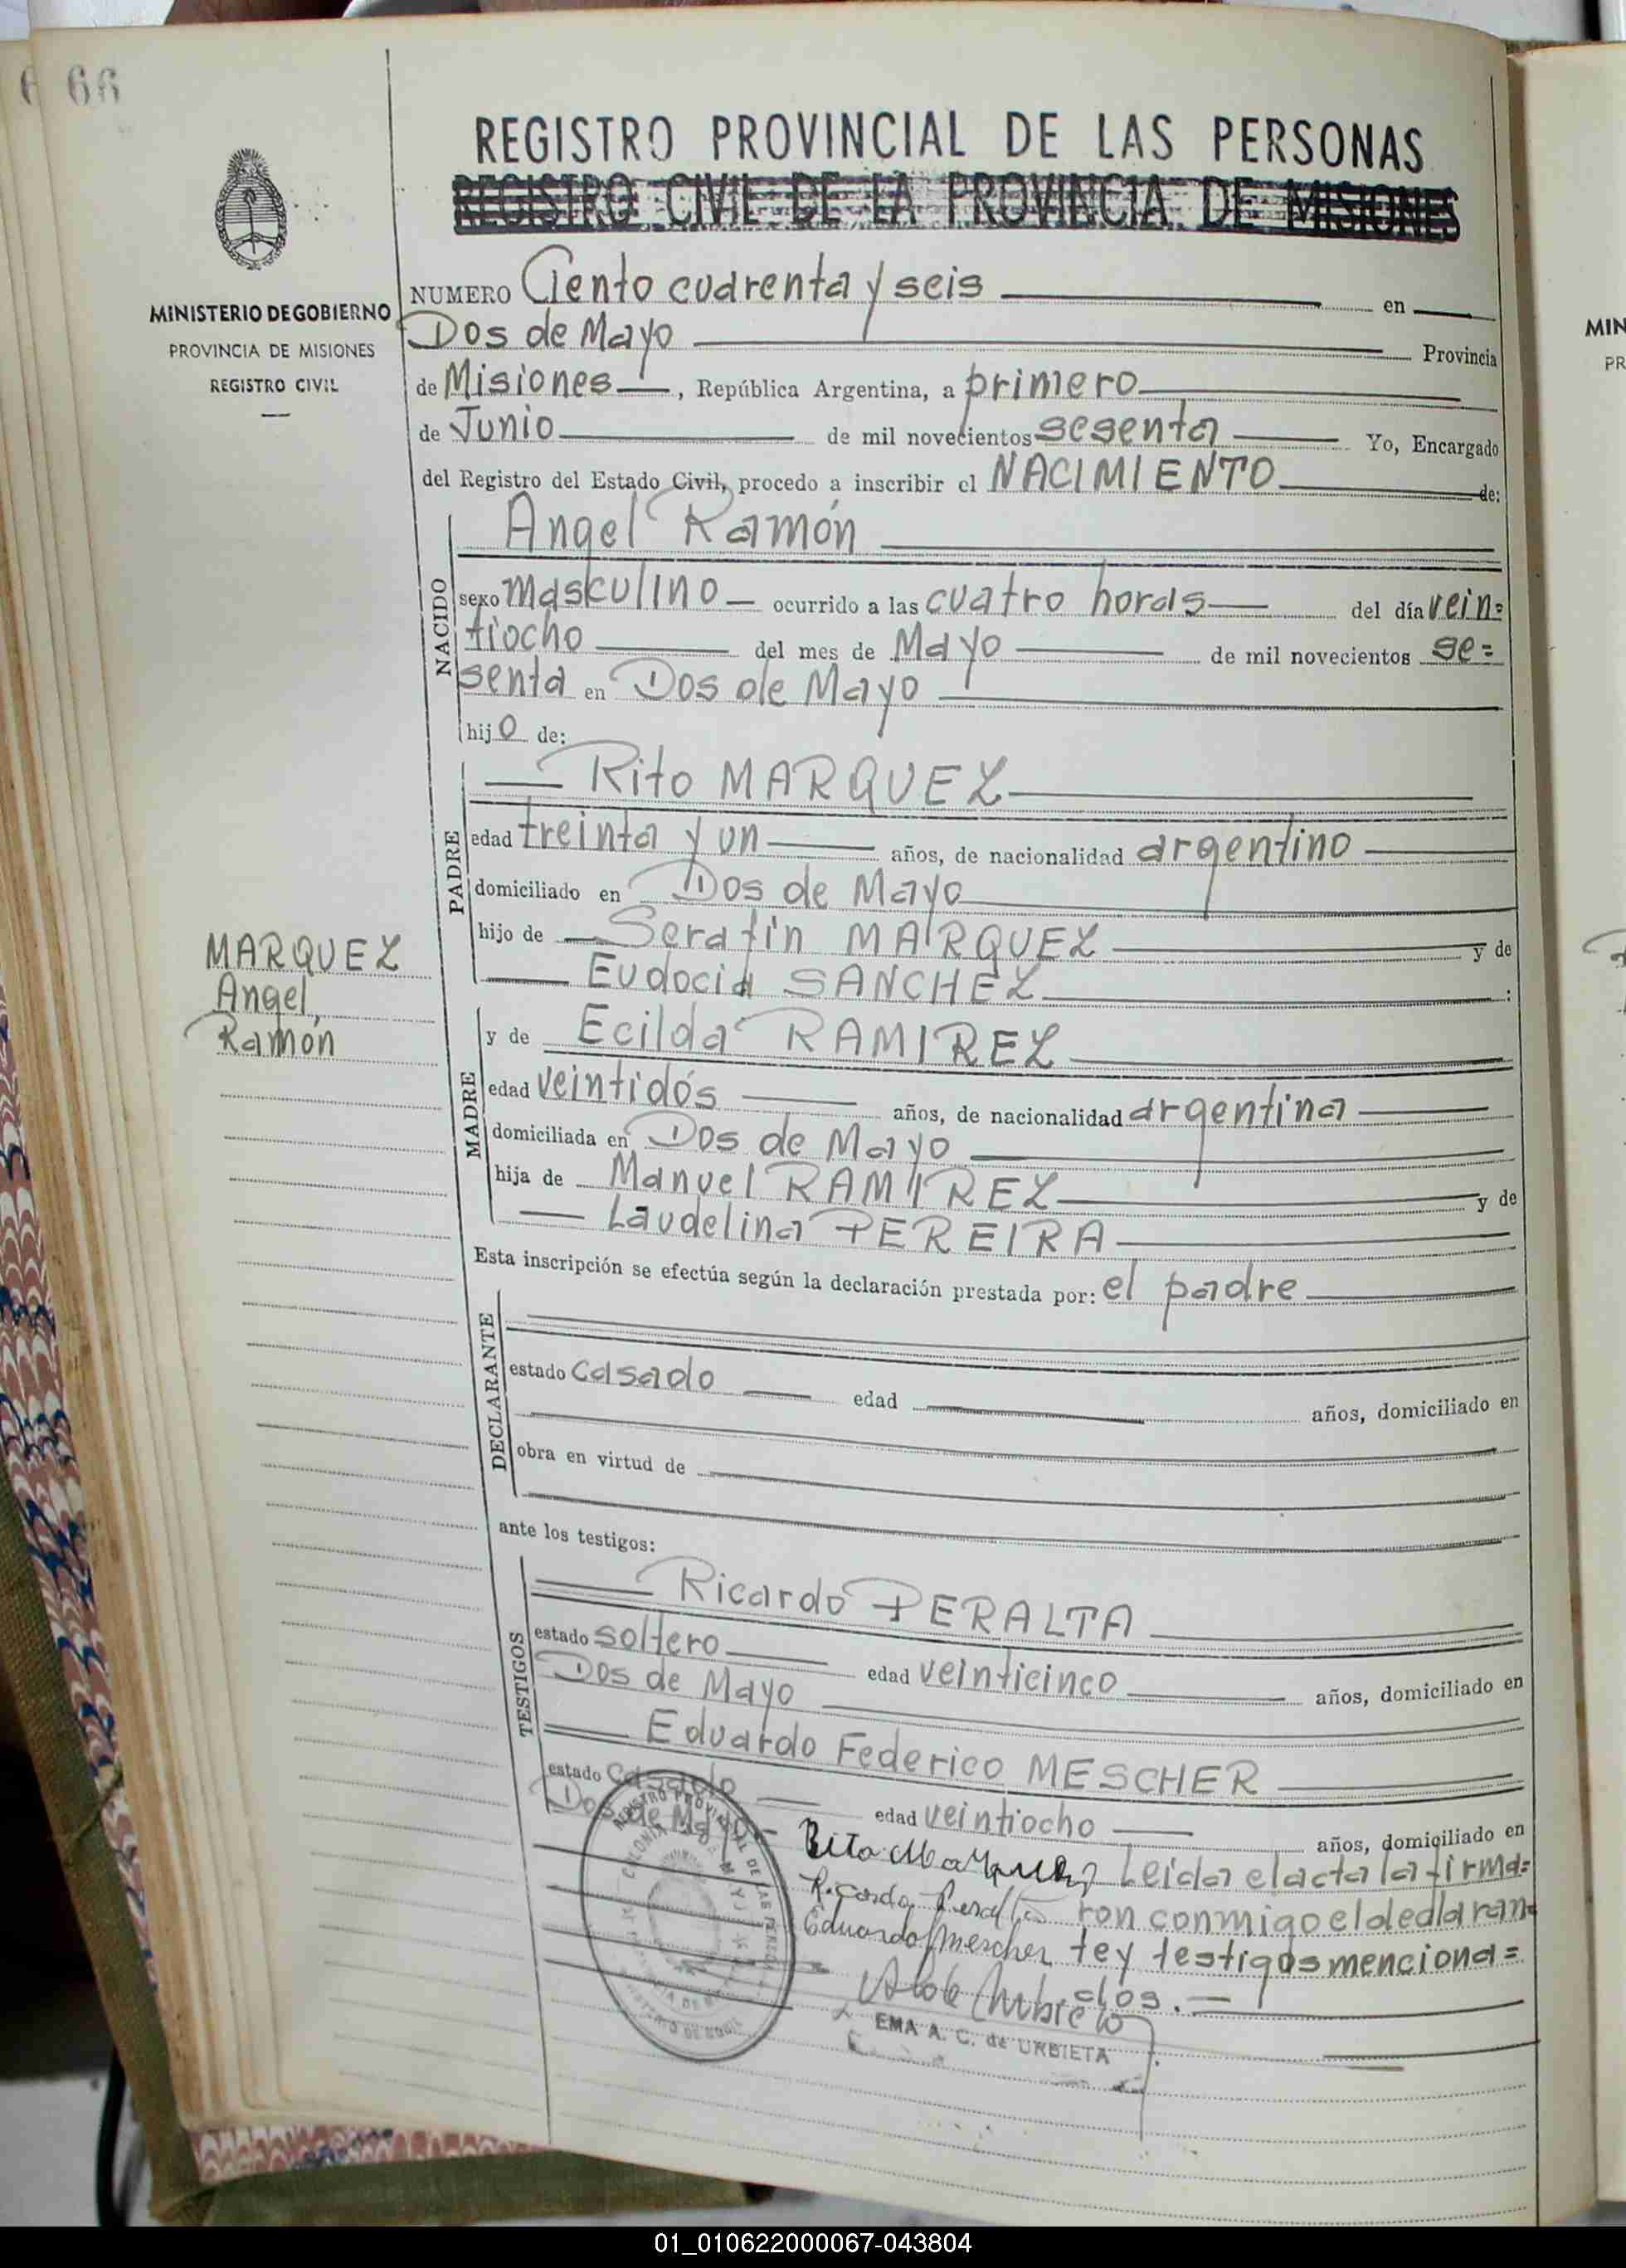 66
REGISTRO PROVINCIAL DE LAS PERSONAS
REGISTRO CIVIL DE LA PROVINCIA DE MISIONES
MINISTERIO DE GOBIERNO
PROVINCIA DE MISIONES
REGISTRO CIVIL
NUMERO Ciento cuarenta y seis en
Dos de Mayo Provincia
de Misiones, República Argentina, a primero
de Junio de mil novecientos sesenta Yo, Encargado
del Registro del Estado Civil, procedo a inscribir el NACIMIENTO de:
NACIDO
Angel Ramón
sexo masculino ocurrido a las cuatro horas del día vein=
tiocho del mes de Mayo de mil novecientos se=
senta en Dos de Mayo
hijo de:
PADRE
Rito MARQUEZ
edad treinta y un años, de nacionalidad argentino
domiciliado en Dos de Mayo
hijo de Serafín MARQUEZ y de
Eudocia SANCHEZ :
MARQUEZ
Angel
Ramón
MADRE
y de Ecilda RAMIREZ
edad veintidós años, de nacionalidad argentina
domiciliada en Dos de Mayo
hija de Manuel RAMIREZ y de
Laudelina PEREIRA
Esta inscripción se efectúa según la declaración prestada por: el padre
DECLARANTE
estado casado edad años, domiciliado en
obra en virtud de
ante los testigos:
TESTIGOS
Ricardo PERALTA
estado soltero edad veinticinco años, domiciliado en
Dos de Mayo
Eduardo Federico MESCHER
estado casado edad veintiocho años, domiciliado en
Dos de Mayo
Rito Marquez Leida el acta la firma=
Ricardo Peralta ron conmigo el declaran=
Eduardo f mescher te y testigos menciona=
dos.
EMA A. C. de URBIETA
REGISTRO PROVINCIAL DE LAS PERSONAS
COLONIA
01_010622000067-043804